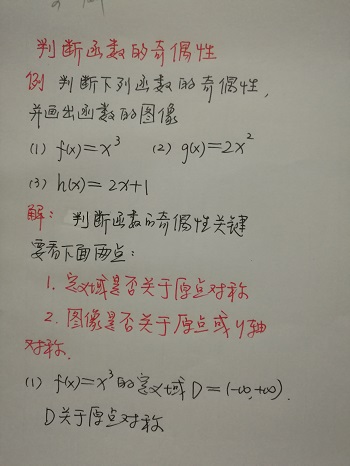 判断函数的奇偶性
例 判断下列函数的奇偶性,
并画出函数的图像
(1) f(x)=x³ (2) g(x)=2x²
(3) h(x)=2x+1
解: 判断函数的奇偶性关键
要看下面两点:
1. 定义域是否关于原点对称
2. 图像是否关于原点或y轴
对称.
(1) f(x)=x³的定义域D=(-∞,+∞).
D关于原点对称